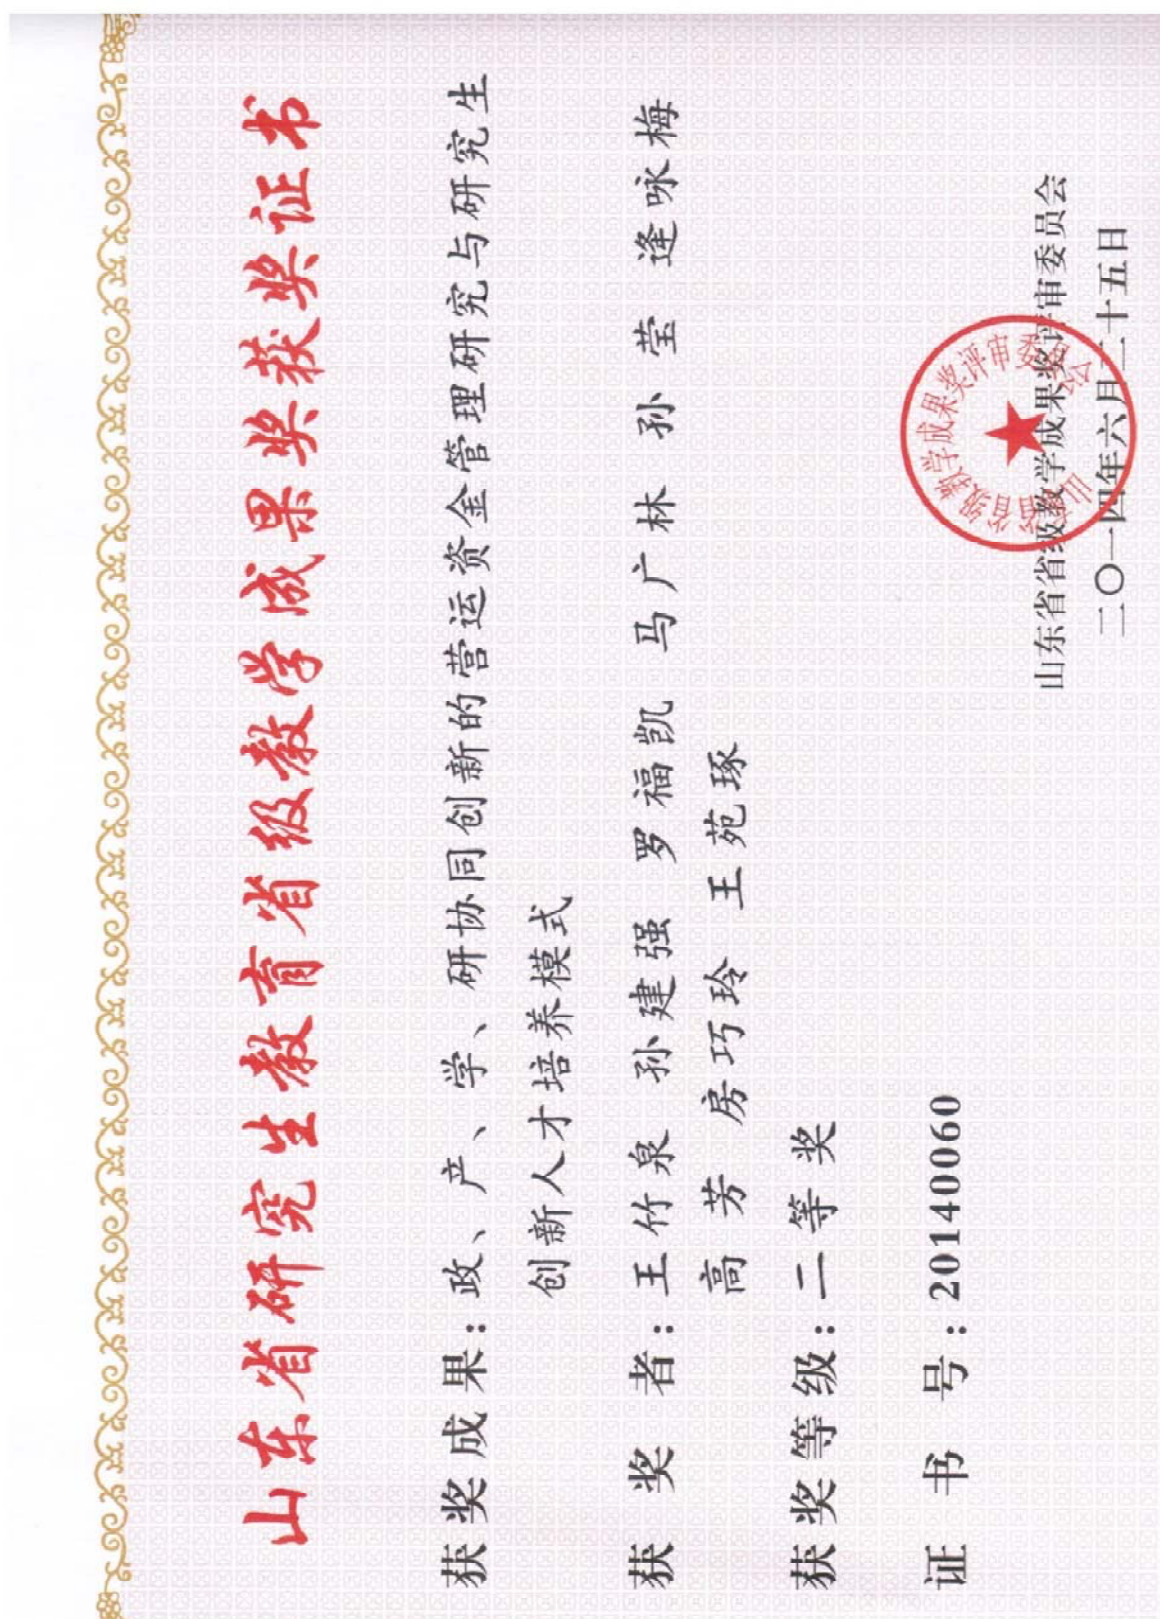 山东省研究生教育省级教学成果奖获奖证书
获奖成果:政、产、学、研协同创新的营运资金管理研究与研究生
创新人才培养模式
获奖者:王竹泉 孙建强 罗福凯 马广林 孙莹 逄咏梅
高芳 房巧玲 王苑琢
获奖等级:二等奖
证书号:20140060
山东省省级教学成果奖评审委员会
二〇一四年六月二十五日
山东省省级教学成果奖评审委员会